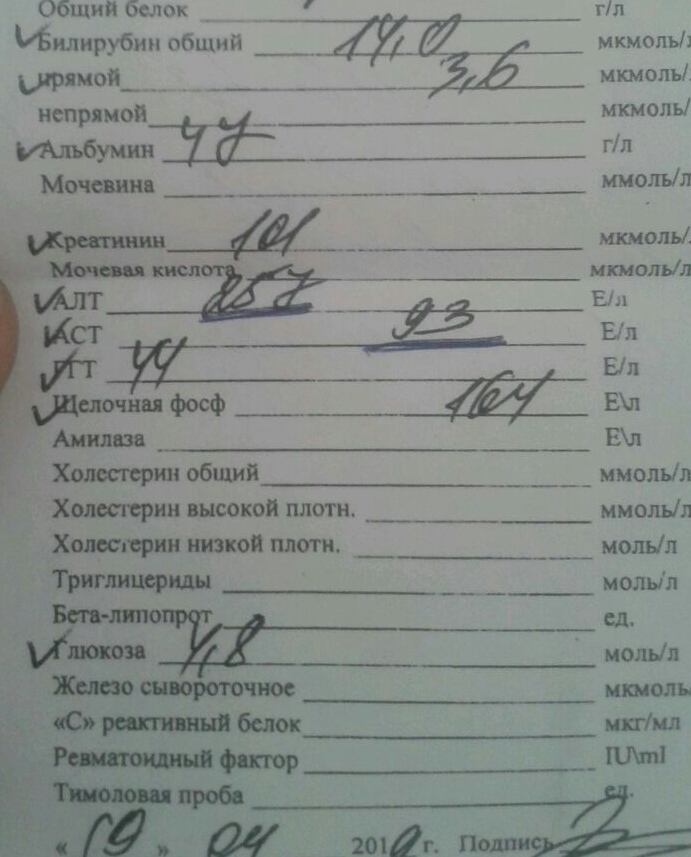 Общий белок г/л
Билирубин общий 14,0 мкмоль/л
прямой 3,6 мкмоль/л
непрямой мкмоль/
Альбумин г/л
Мочевина ммоль/л
Креатинин 101 мкмоль/
Мочевая кислота мкмоль/л
АЛТ 257 Е/л
АСТ 93 Е/л
ГГТ 44 Е/л
Щелочная фосф 164 Е\л
Амилаза Е\л
Холестерин общий ммоль/л
Холестерин высокой плотн. ммоль/л
Холестерин низкой плотн. моль/л
Триглицериды моль/л
Бета-липопрот ед.
Глюкоза 4,8 моль/л
Железо сывороточное мкмоль/
«С» реактивный белок мкг/мл
Ревматоидный фактор IU\ml
Тимоловая проба ед.
« 19 » 04 2019 г. Подпись